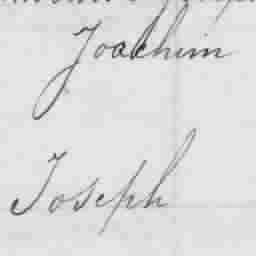 Joachim
Joseph